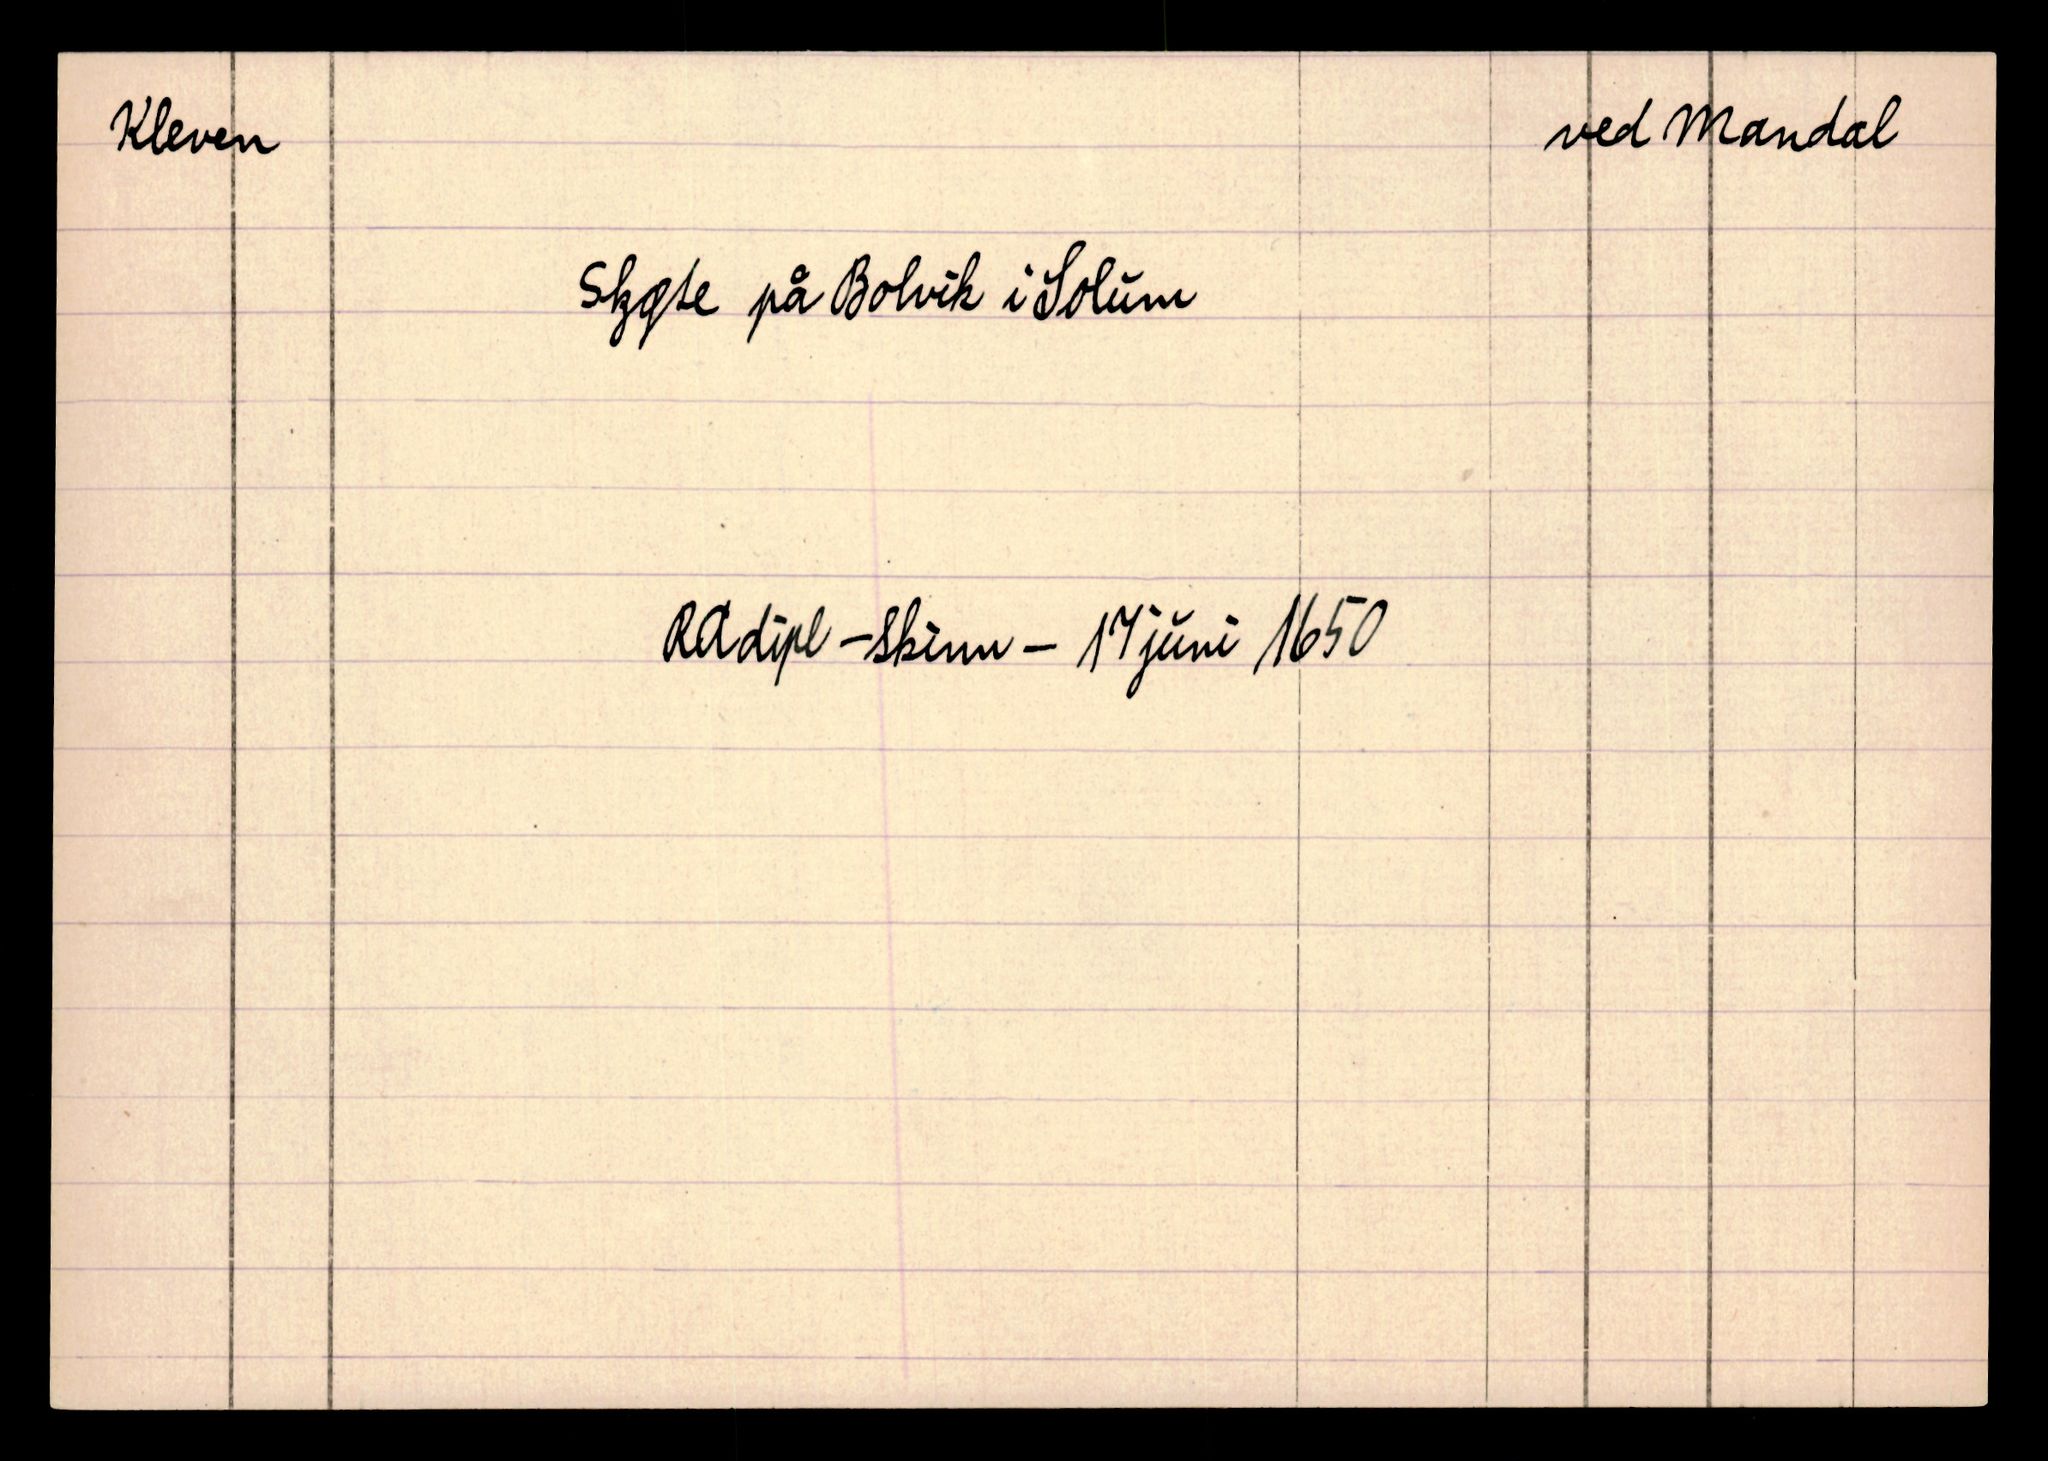 Kleven ved Mandal
Skøte på Bolvik i Solum
RA dipl - skinn - 17 juni 1650